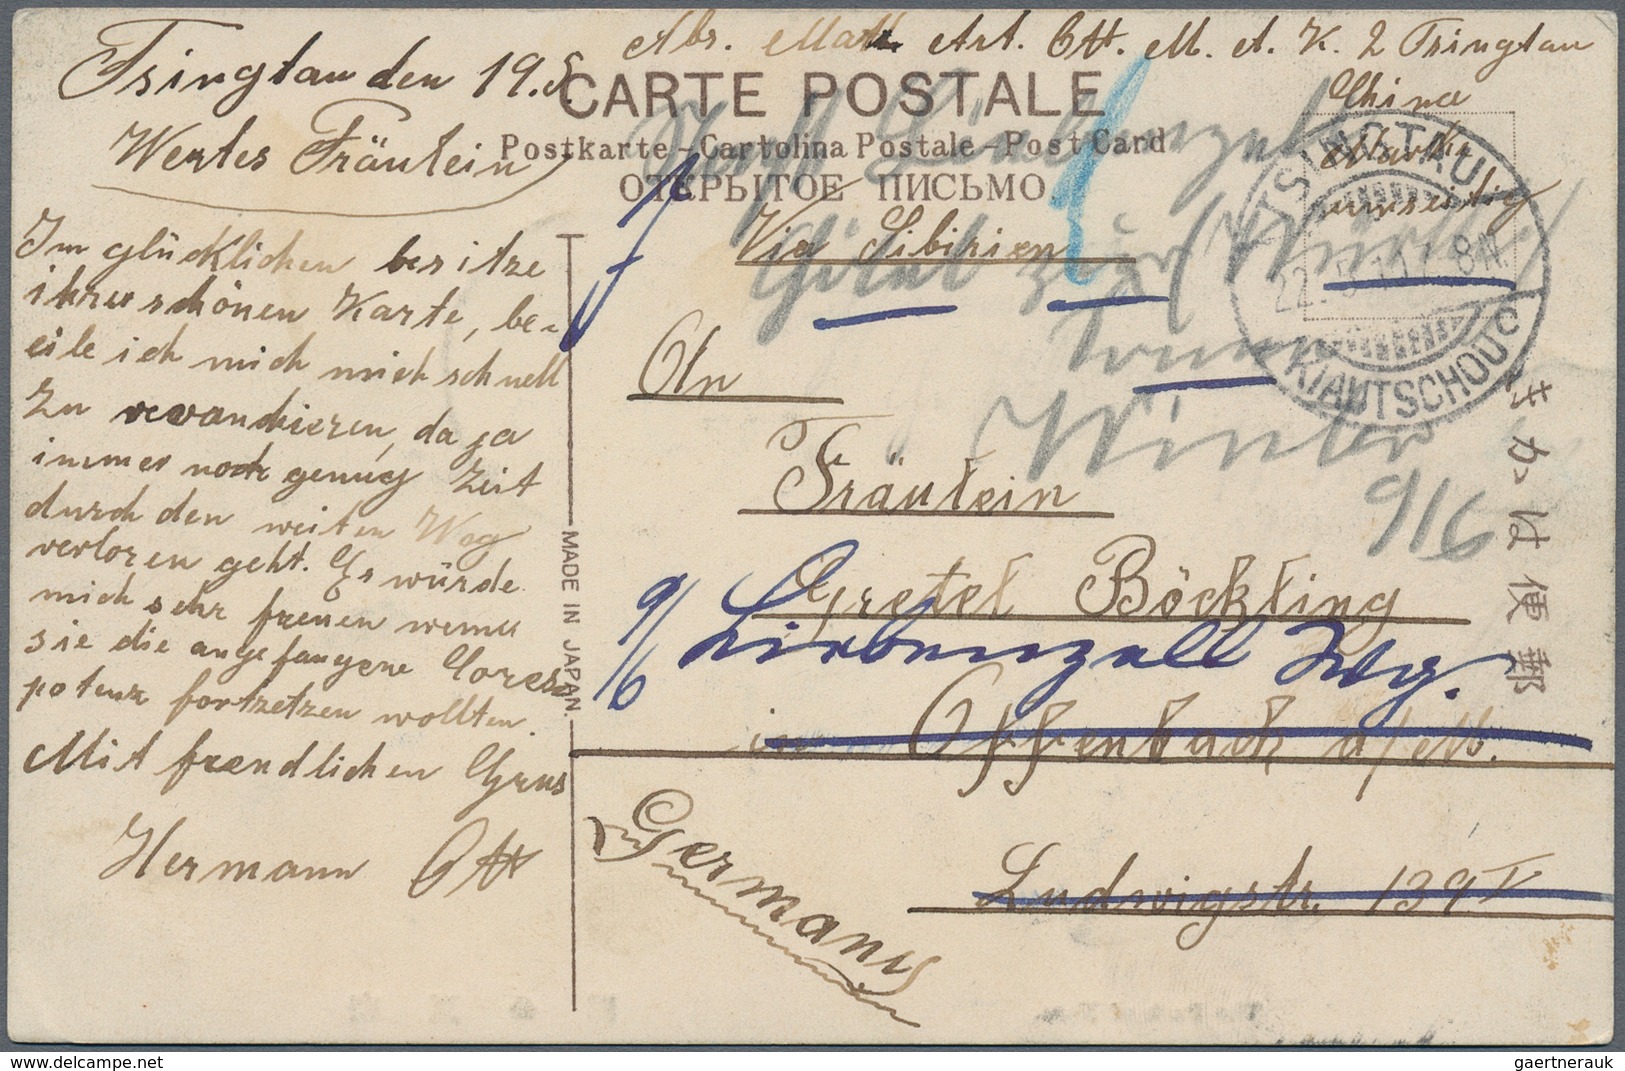 Abs. Matr. Art. Ott. M. A. K. 2 Tsingtau
China
Marke
umseitig
Tsingtau den 19.5.
CARTE POSTALE
Postkarte - Cartolina Postale - Post Card
ОТКРЫТОЕ ПИСЬМО.
Via Sibirien
TSINGTAU
22. 5. 11. 8 N.
KIAUTSCHOU
Wertes Fräulein
Im glücklichen besitze
ihrer schönen Karte, be-
eile ich mich mich schnell
zu revanchieren, da ja
immer noch genug Zeit
durch den weiten Weg
verloren geht. Es würde
mich sehr freuen wenn
sie die angefangene Cores-
potenz fortzetzen wollten.
Mit freundlichen Grus
Hermann Ott
An
Fräulein
Gretel Böckling
in Offenbach a/M.
Ludwigstr. 139 I
Germany
9/6 Liebenzell Wbg.
Hotel
zur
Winter
9/6
郵便はかき
MADE IN JAPAN.
gaertnerauk